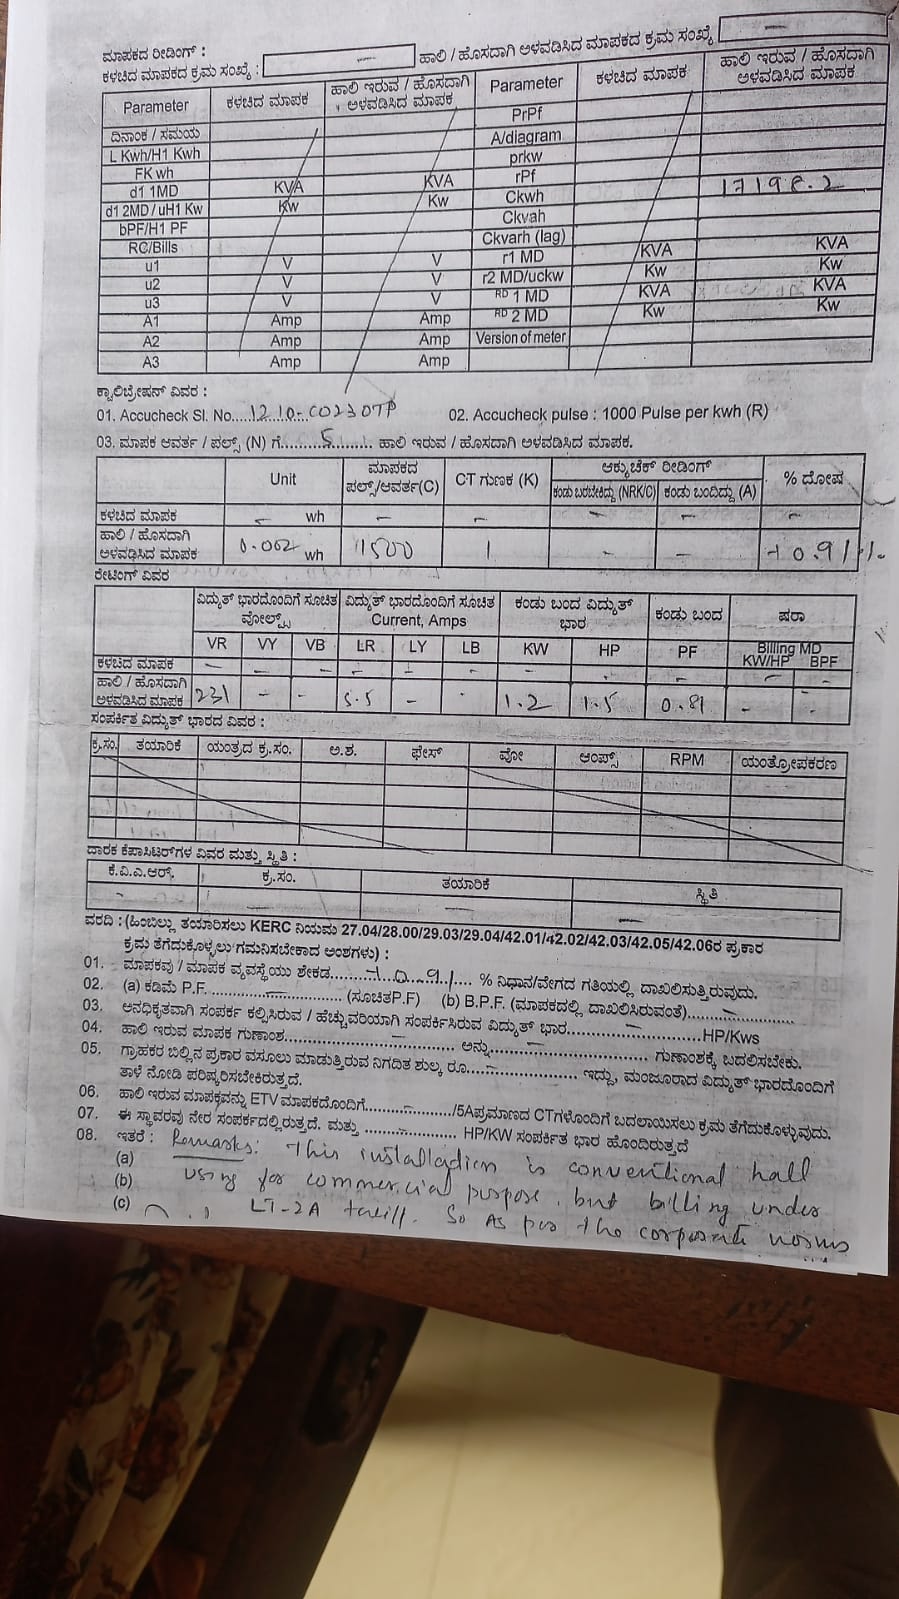 ಮಾಪಕದ ರೀಡಿಂಗ್ :
ಕಳಚಿದ ಮಾಪಕದ ಕ್ರಮ ಸಂಖ್ಯೆ : — ಹಾಲಿ / ಹೊಸದಾಗಿ ಅಳವಡಿಸಿದ ಮಾಪಕದ ಕ್ರಮ ಸಂಖ್ಯೆ —
Parameter ಕಳಚಿದ ಮಾಪಕ ಹಾಲಿ ಇರುವ / ಹೊಸದಾಗಿ ಅಳವಡಿಸಿದ ಮಾಪಕ Parameter ಕಳಚಿದ ಮಾಪಕ ಹಾಲಿ ಇರುವ / ಹೊಸದಾಗಿ ಅಳವಡಿಸಿದ ಮಾಪಕ
ದಿನಾಂಕ / ಸಮಯ PrPf
L Kwh/H1 Kwh A/diagram
FK wh prkw
d1 1MD KVA KVA rPf
d1 2MD / uH1 Kw Kw Kw Ckwh 17198.2
bPF/H1 PF Ckvah
RC/Bills Ckvarh (lag)
u1 V V r1 MD KVA KVA
u2 V V r2 MD/uckw Kw Kw
u3 V V RD 1 MD KVA KVA
A1 Amp Amp RD 2 MD Kw Kw
A2 Amp Amp Version of meter
A3 Amp Amp
ಕ್ಯಾಲಿಬ್ರೇಷನ್ ವಿವರ :
01. Accucheck Sl. No....1210-C0230TP 02. Accucheck pulse : 1000 Pulse per kwh (R)
03. ಮಾಪಕ ಆವರ್ತ / ಪಲ್ಸ್ (N) ಗೆ.........5......... ಹಾಲಿ ಇರುವ / ಹೊಸದಾಗಿ ಅಳವಡಿಸಿದ ಮಾಪಕ.
Unit ಮಾಪಕದ ಪಲ್ಸ್/ಆವರ್ತ(C) CT ಗುಣಕ (K) ಆಕ್ಯುಚೆಕ್ ರೀಡಿಂಗ್ % ದೋಷ
ಕಂಡು ಬರಬೇಕಿದ್ದು (NRK/C) ಕಂಡು ಬಂದಿದ್ದು (A)
ಕಳಚಿದ ಮಾಪಕ – wh – – – – –
ಹಾಲಿ / ಹೊಸದಾಗಿ ಅಳವಡಿಸಿದ ಮಾಪಕ 0.002 wh 1500 1 – – +0.91%
ರೇಟಿಂಗ್ ವಿವರ
ವಿದ್ಯುತ್ ಭಾರದೊಂದಿಗೆ ಸೂಚಿತ ವೋಲ್ಟ್ಸ್ ವಿದ್ಯುತ್ ಭಾರದೊಂದಿಗೆ ಸೂಚಿತ Current, Amps ಕಂಡು ಬಂದ ವಿದ್ಯುತ್ ಭಾರ ಕಂಡು ಬಂದ ಷರಾ
VR VY VB LR LY LB KW HP PF Billing MD KW/HP BPF
ಕಳಚಿದ ಮಾಪಕ – – – – – – – – – – –
ಹಾಲಿ / ಹೊಸದಾಗಿ ಅಳವಡಿಸಿದ ಮಾಪಕ 231 – – 5.5 – - 1.2 1.5 0.81 – –
ಸಂಪರ್ಕಿತ ವಿದ್ಯುತ್ ಭಾರದ ವಿವರ :
ಕ್ರ.ಸಂ. ತಯಾರಿಕೆ ಯಂತ್ರದ ಕ್ರ.ಸಂ. ಅ.ಶ. ಫೇಸ್ ವೋ ಆಂಪ್ಸ್ RPM ಯಂತ್ರೋಪಕರಣ
ದಾರಕ ಕೆಪಾಸಿಟರ್‌ಗಳ ವಿವರ ಮತ್ತು ಸ್ಥಿತಿ :
ಕೆ.ವಿ.ಎ.ಆರ್. ಕ್ರ.ಸಂ. ತಯಾರಿಕೆ ಸ್ಥಿತಿ
ವರದಿ : (ಹಿಂಬಿಲ್ಲು ತಯಾರಿಸಲು KERC ನಿಯಮ 27.04/28.00/29.03/29.04/42.01/42.02/42.03/42.05/42.06ರ ಪ್ರಕಾರ
ಕ್ರಮ ತೆಗೆದುಕೊಳ್ಳಲು ಗಮನಿಸಬೇಕಾದ ಅಂಶಗಳು) :
01. ಮಾಪಕವು / ಮಾಪಕ ವ್ಯವಸ್ಥೆಯು ಶೇಕಡ........+0.91.... % ನಿಧಾನ/ವೇಗದ ಗತಿಯಲ್ಲಿ ದಾಖಲಿಸುತ್ತಿರುವುದು.
02. (a) ಕಡಿಮೆ P.F. .......–....... (ಸೂಚಿತP.F) (b) B.P.F. (ಮಾಪಕದಲ್ಲಿ ದಾಖಲಿಸಿರುವಂತೆ).......–.......
03. ಅನಧಿಕೃತವಾಗಿ ಸಂಪರ್ಕ ಕಲ್ಪಿಸಿರುವ / ಹೆಚ್ಚುವರಿಯಾಗಿ ಸಂಪರ್ಕಿಸಿರುವ ವಿದ್ಯುತ್ ಭಾರ.......–.......HP/Kws
04. ಹಾಲಿ ಇರುವ ಮಾಪಕ ಗುಣಾಂಶ.......–....... ಅನ್ನು.......–....... ಗುಣಾಂಶಕ್ಕೆ ಬದಲಿಸಬೇಕು.
05. ಗ್ರಾಹಕರ ಬಿಲ್ಲಿನ ಪ್ರಕಾರ ವಸೂಲು ಮಾಡುತ್ತಿರುವ ನಿಗದಿತ ಶುಲ್ಕ ರೂ.......–....... ಇದ್ದು, ಮಂಜೂರಾದ ವಿದ್ಯುತ್ ಭಾರದೊಂದಿಗೆ
ತಾಳೆ ನೋಡಿ ಪರಿಷ್ಕರಿಸಬೇಕಿರುತ್ತದೆ.
06. ಹಾಲಿ ಇರುವ ಮಾಪಕವನ್ನು ETV ಮಾಪಕದೊಂದಿಗೆ.......–......./5Aಪ್ರಮಾಣದ CTಗಳೊಂದಿಗೆ ಬದಲಾಯಿಸಲು ಕ್ರಮ ತೆಗೆದುಕೊಳ್ಳುವುದು.
07. ಈ ಸ್ಥಾವರವು ನೇರ ಸಂಪರ್ಕದಲ್ಲಿರುತ್ತದೆ. ಮತ್ತು .......–....... HP/KW ಸಂಪರ್ಕಿತ ಭಾರ ಹೊಂದಿರುತ್ತದೆ
08. ಇತರೆ : Remarks: This installation is conventional hall
(a)
(b) using for commercial purpose, but billing under
(c) LT-2A tariff. So As per the corporate norms